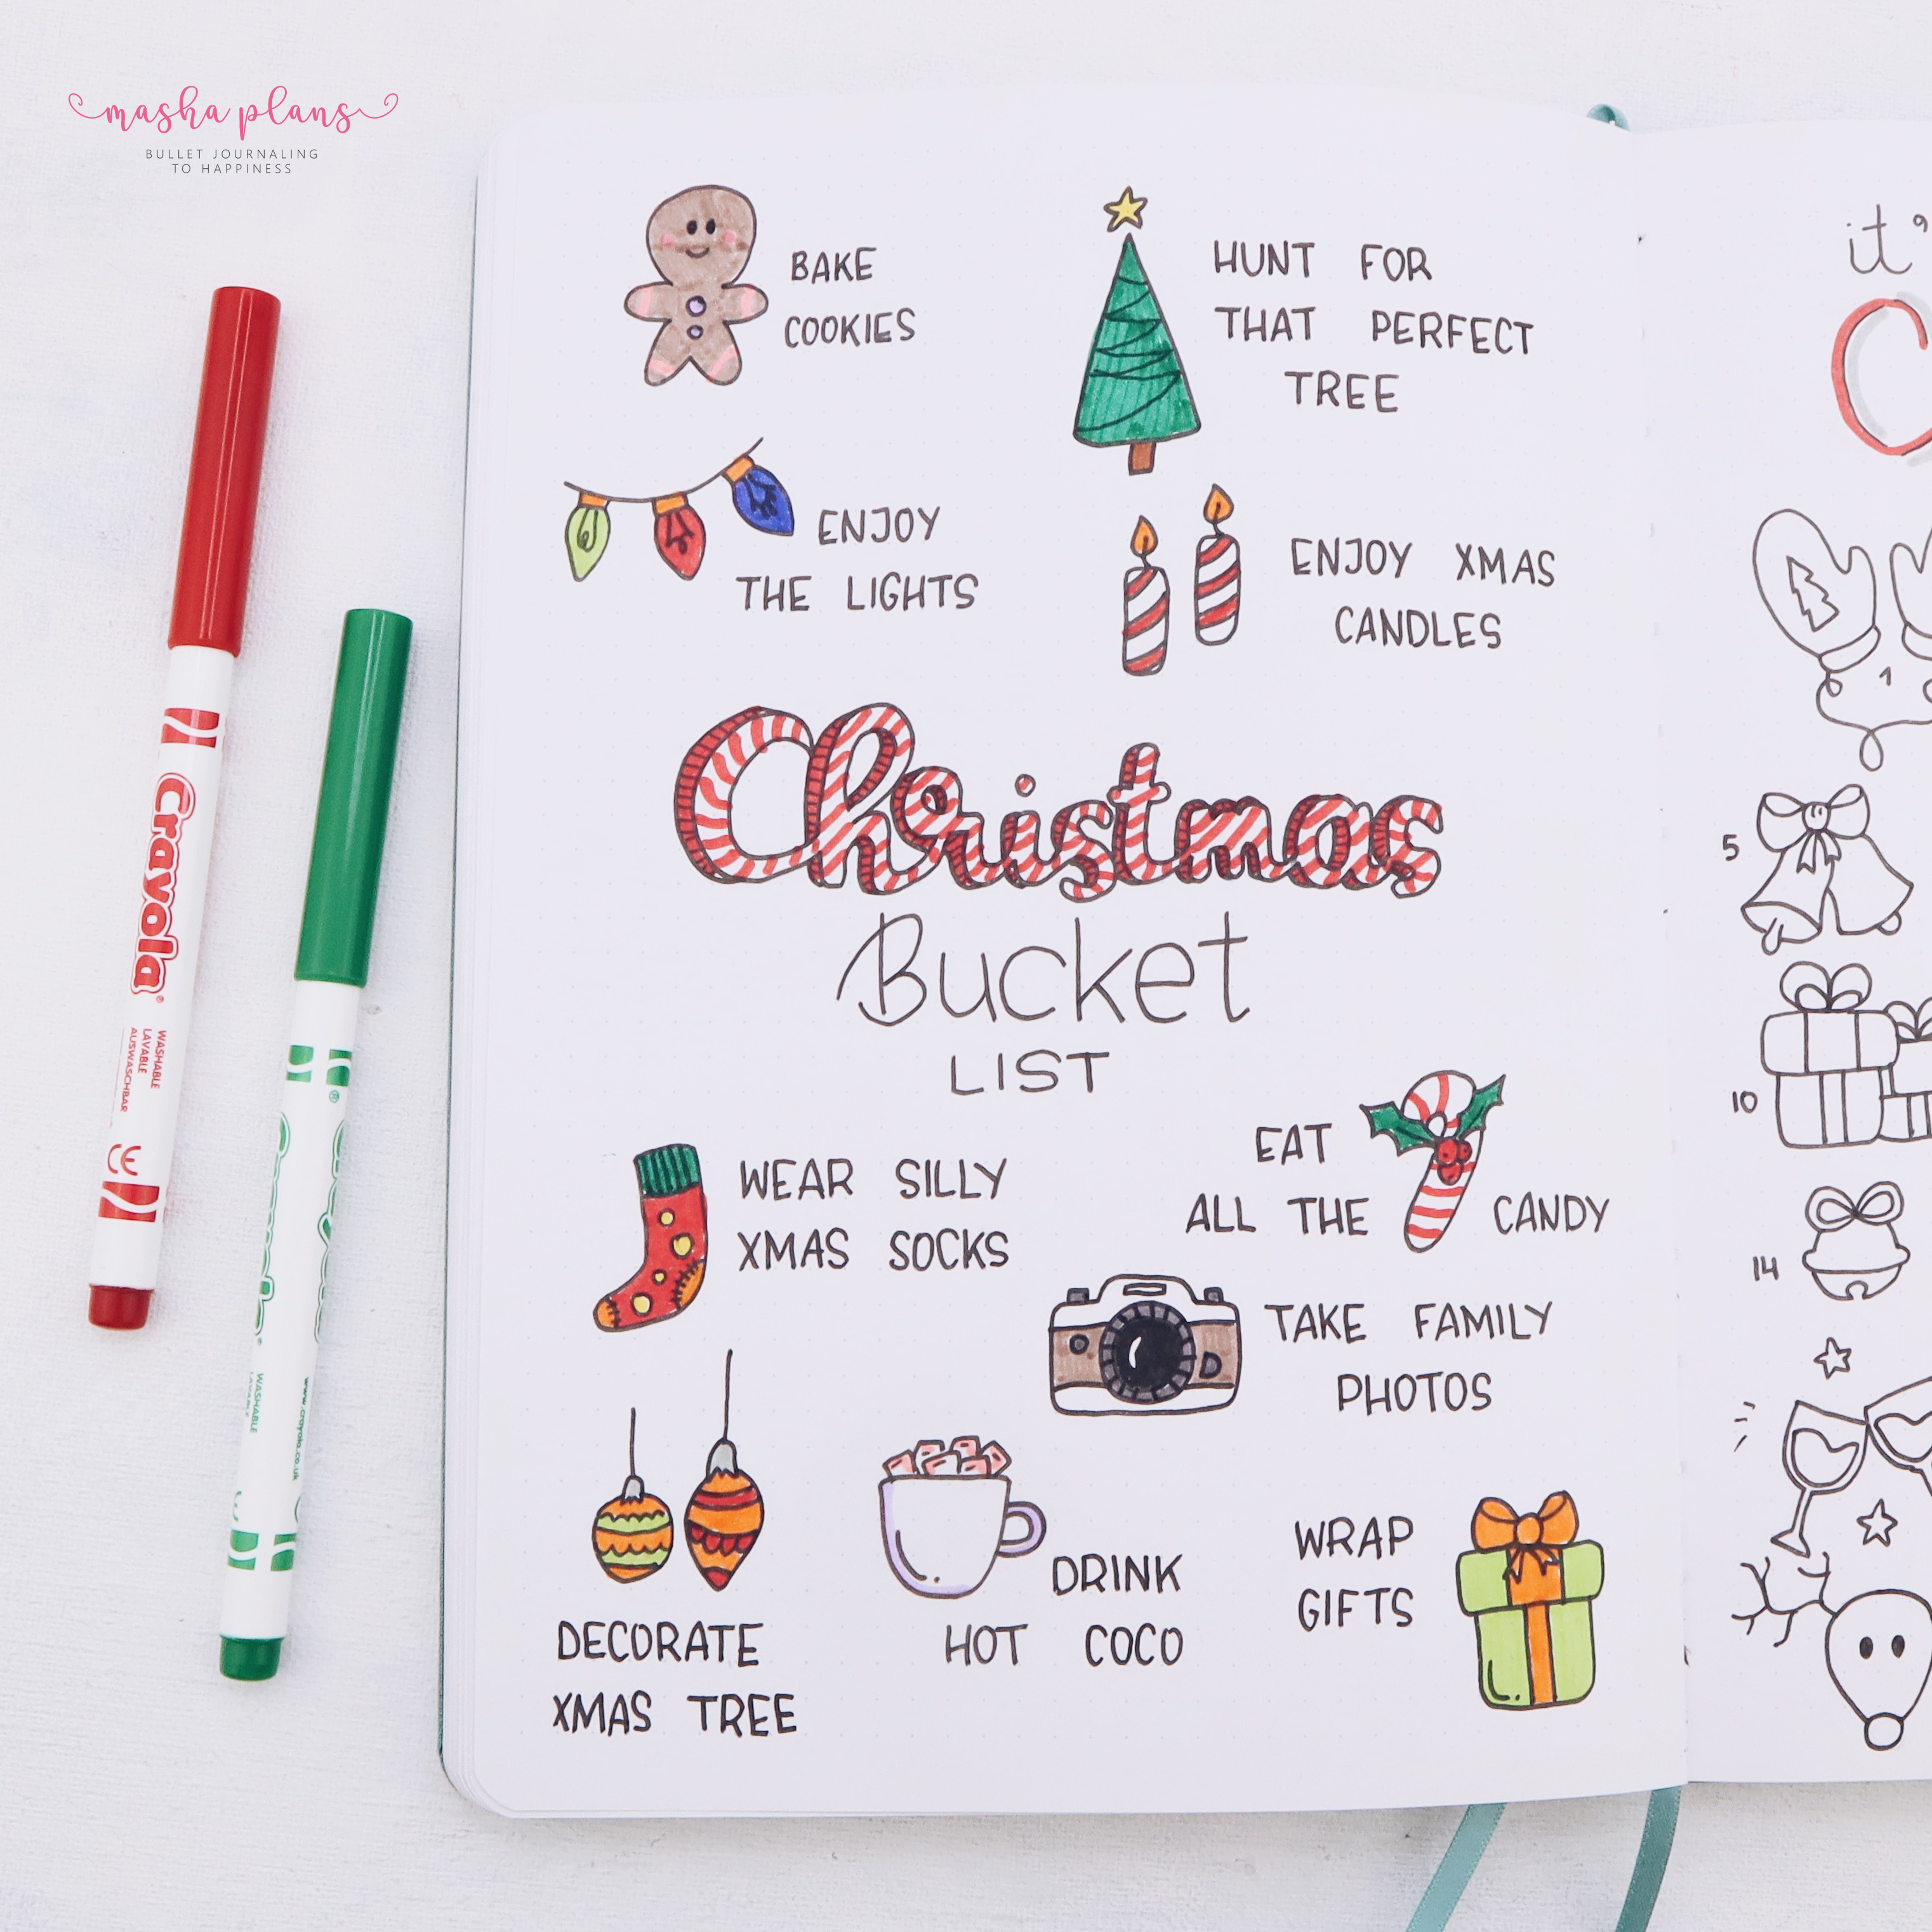 masha plans
BULLET JOURNALING
TO HAPPINESS
BAKE
COOKIES
HUNT FOR
THAT PERFECT
TREE
ENJOY
THE LIGHTS
ENJOY XMAS
CANDLES
Christmas
Bucket
LIST
WEAR SILLY
XMAS SOCKS
EAT
ALL THE CANDY
TAKE FAMILY
PHOTOS
DECORATE
XMAS TREE
DRINK
HOT COCO
WRAP
GIFTS
it'
C
1
5
10
14
Crayola
WASHABLE
LAVABLE
AUSWASCHBAR
CE
WASHABLE
www.crayola.co.uk